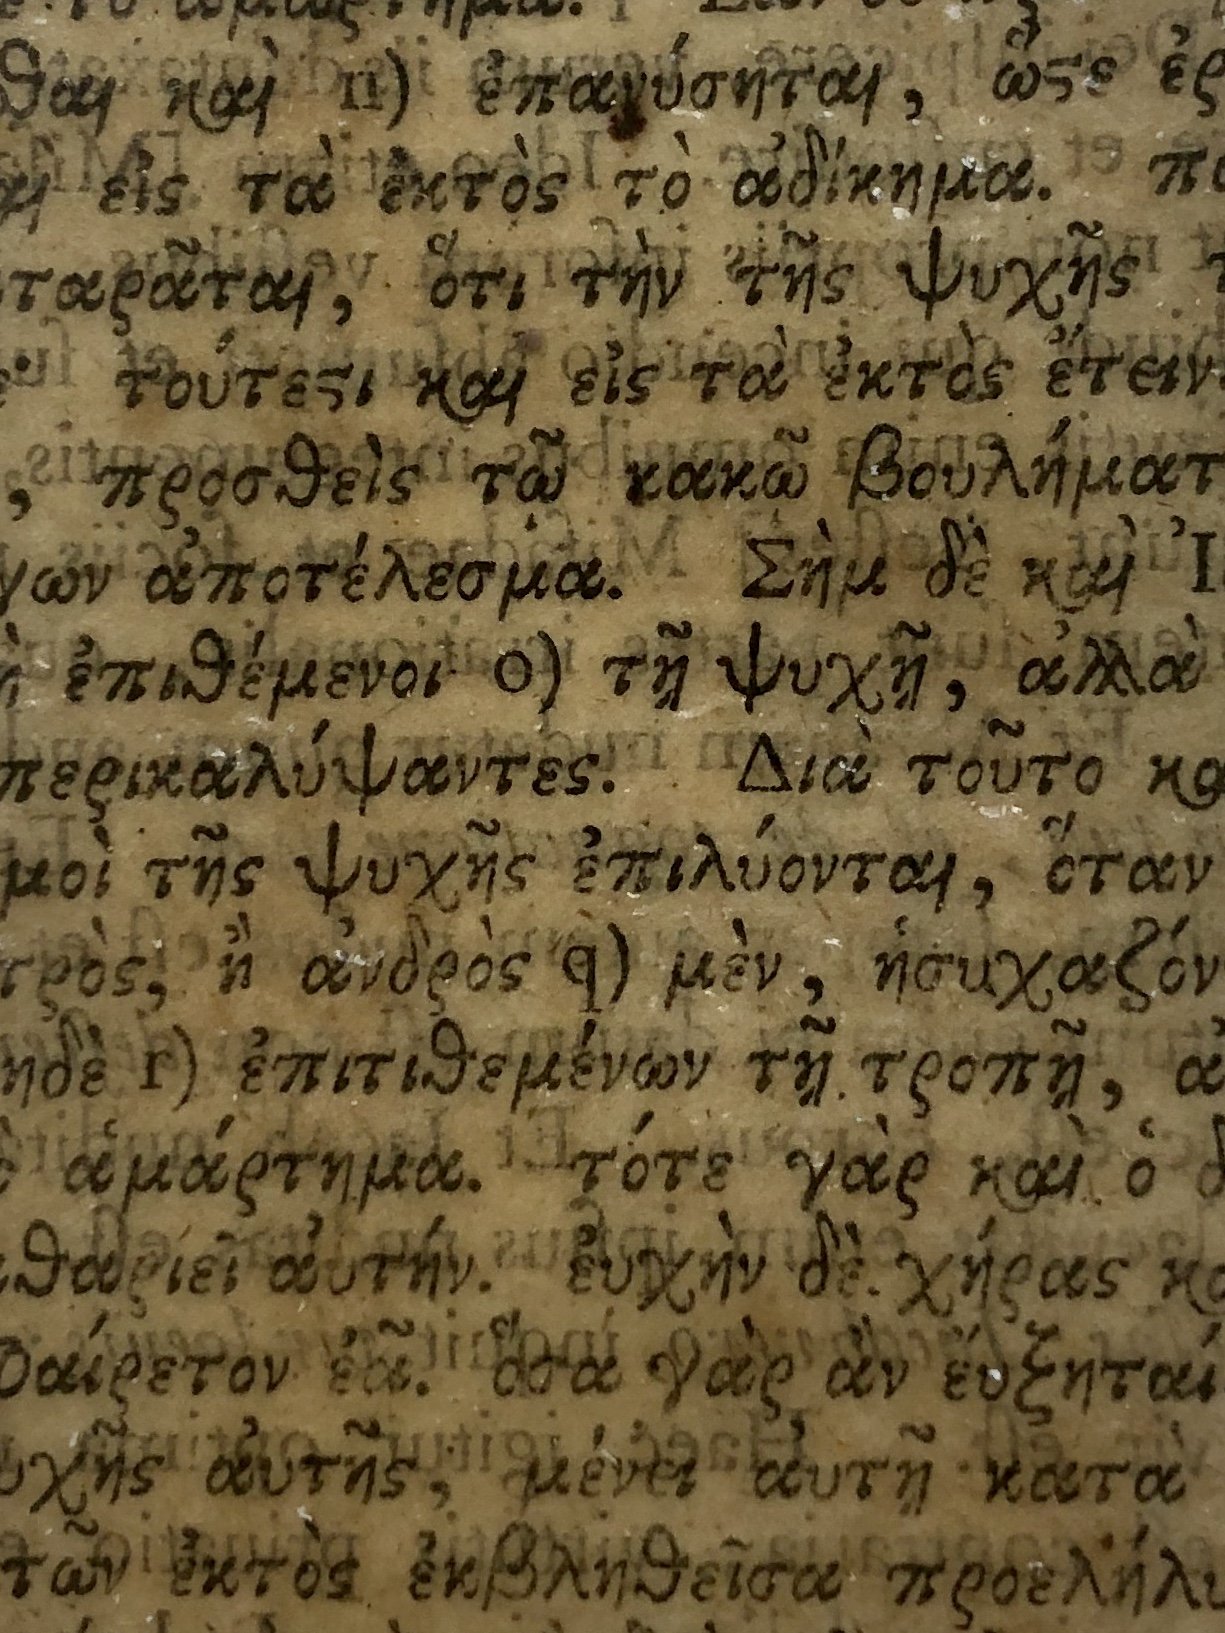 τὸ ἁμάρτημα.
θαι καὶ n) ἐπανύσηται, ὥςε ἐρ
αι εἰς τὰ ἐκτὸς τὸ ἀδίκημα.
ταρᾶται, ὅτι τὴν τῆς ψυχῆς τ
τούτεςι καὶ εἰς τὰ ἐκτὸς ἔτειν
, προσθεὶς τῶ κακῶ βουλήματ
γων ἀποτέλεσμα. Σὴμ δὲ καὶ Ἰ
ἐπιθέμενοι o) τῆ ψυχῆ, ἀλλὰ
περικαλύψαντες. Διὰ τοῦτο κα
μοὶ τῆς ψυχῆς ἐπιλύονται, ὅταν
τρὸς, ἢ ἀνδρὸς q) μὲν, ἡσυχαζόν
ηδὲ r) ἐπιτιθεμένων τῆ τροπῆ, ἀ
ἁμάρτημα. τότε γὰρ καὶ ὁ δ
θαριεῖ ἀυτήν. ἐυχὴν δὲ χήρας κα
αίρετον ἐᾶ. ὅσα γὰρ ἂν ἐύξηταί
υχῆς ἀυτῆς, μένει ἀυτῆ κατὰ
τῶν ἐκτὸς ἐκβληθεῖσα προελήλυ